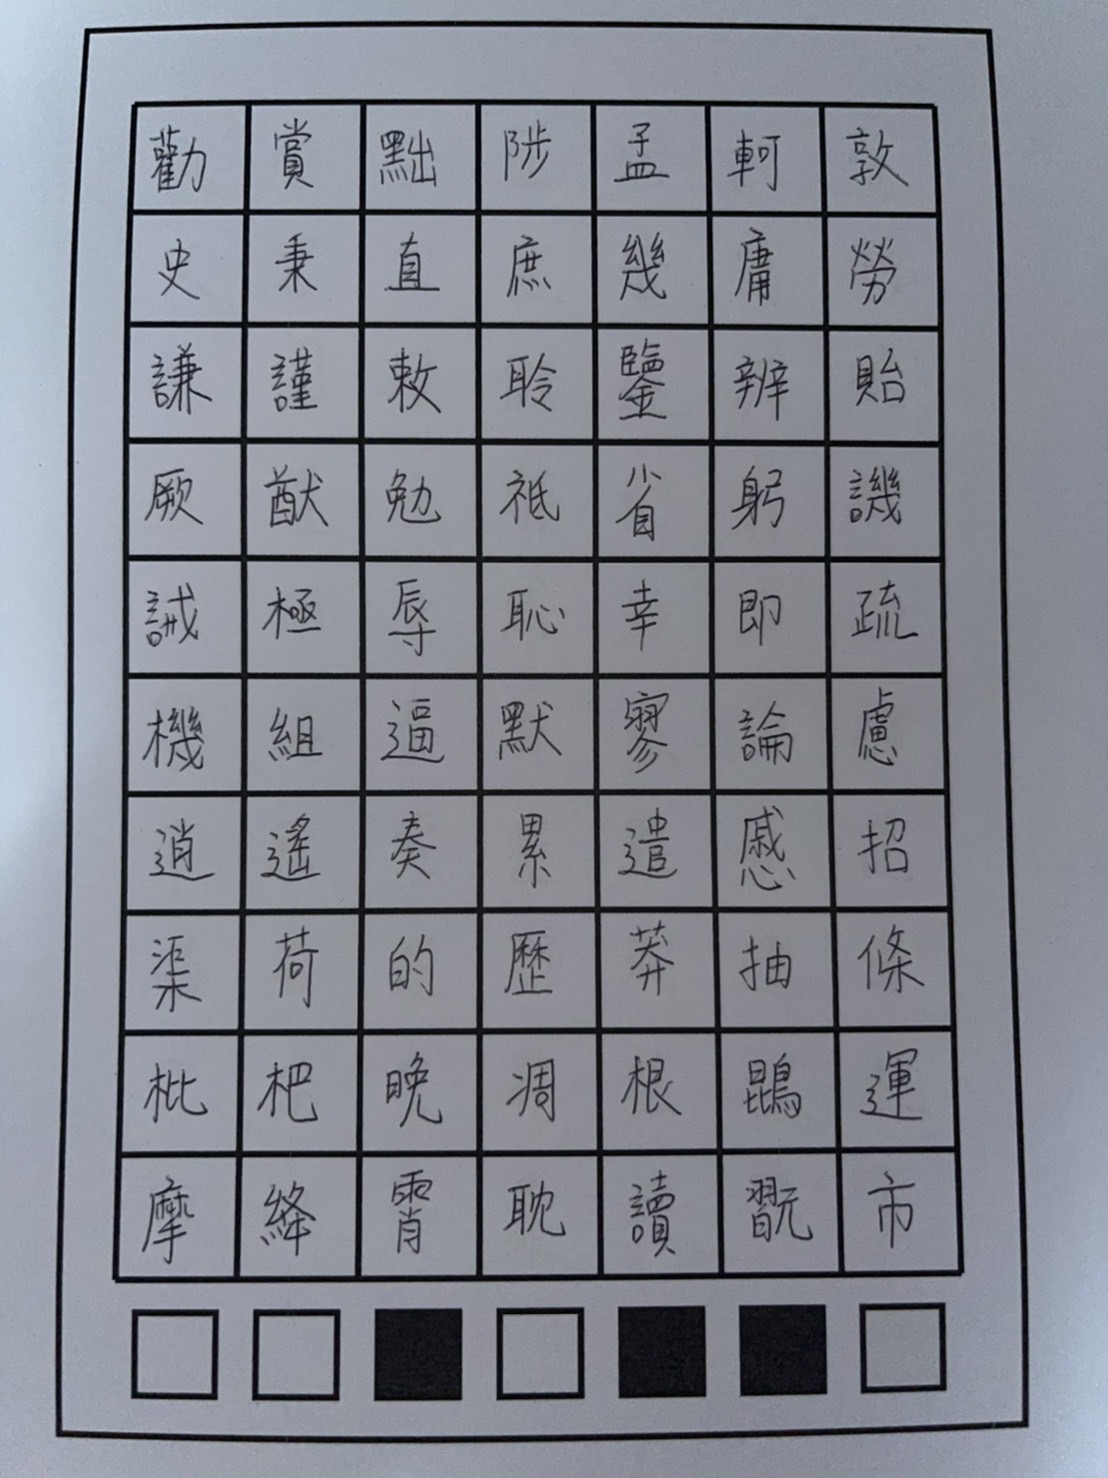 勸賞黜陟孟軻敦
史秉直庶幾庸勞
謙謹敕聆鑒辨貽
厥猷勉祗省躬譏
誡極辱恥幸即疏
機組逼默寥論慮
逍遙奏累遣慼招
渠荷的歷莽抽條
枇杷晚凋根鵾運
摩絳霄耽讀翫市